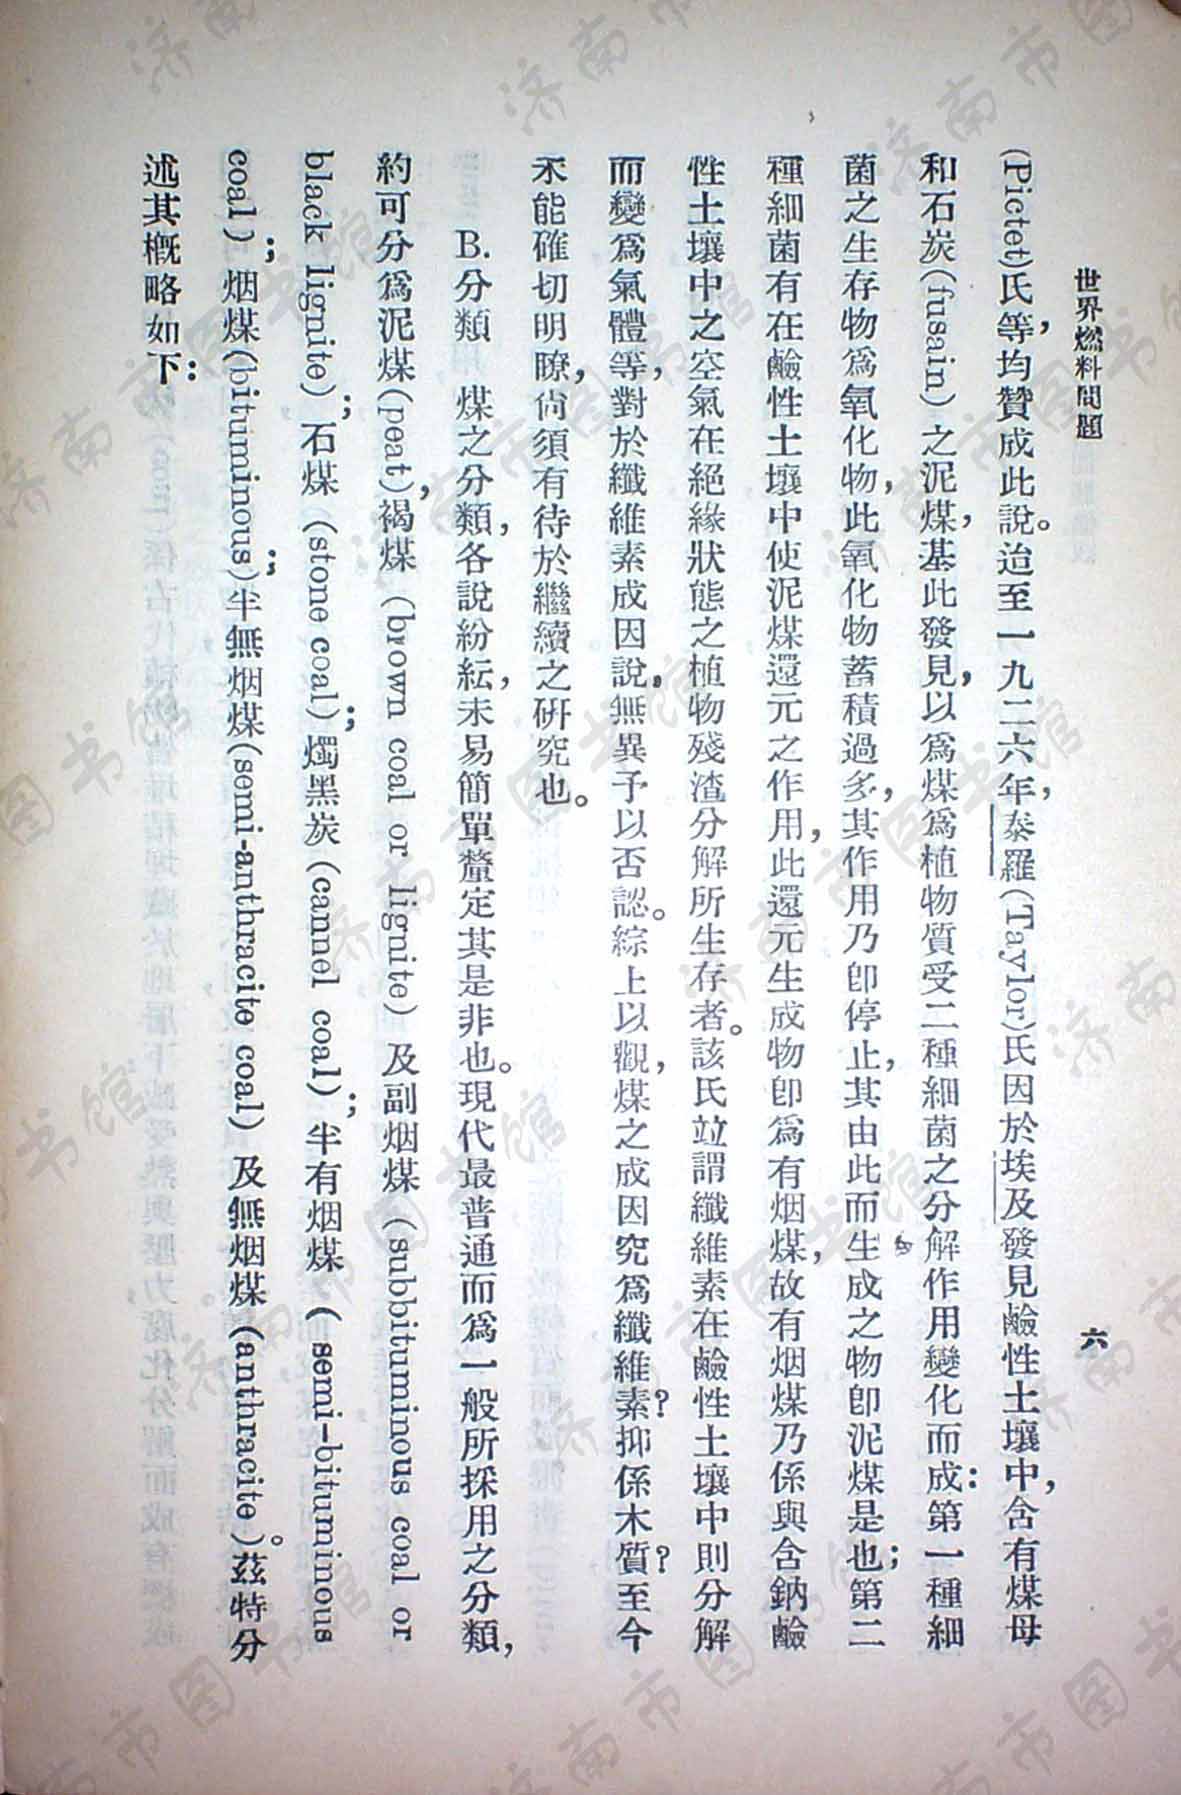 世界燃料問題
六
(Pictet)氏等，均贊成此說。迨至一九二六年，泰羅(Taylor)氏因於埃及發見鹼性土壤中，含有煤母
和石炭(fusain)之泥煤，基此發見，以爲煤爲植物質受二種細菌之分解作用變化而成：第一種細
菌之生存物爲氧化物，此氧化物蓄積過多，其作用乃卽停止，其由此而生成之物卽泥煤是也；第二
種細菌有在鹼性土壤中使泥煤還元之作用，此還元生成物卽爲有烟煤，故有烟煤乃係與含鈉鹼
性土壤中之空氣在絕緣狀態之植物殘渣分解所生存者。該氏竝謂纖維素在鹼性土壤中則分解
而變爲氣體等，對於纖維素成因說，無異予以否認。綜上以觀，煤之成因究爲纖維素？抑係木質？至今
未能確切明瞭，尙須有待於繼續之研究也。
B.分類　煤之分類，各說紛紜，未易簡單釐定其是非也。現代最普通而爲一般所採用之分類，
約可分爲泥煤(peat)，褐煤 (brown coal or lignite) 及副烟煤 (subbituminous coal or
black lignite)；石煤 (stone coal)；燭黑炭(cannel coal)；半有烟煤 (semi-bituminous
coal)；烟煤(bituminous)；半無烟煤(semi-anthracite coal) 及無烟煤(anthracite)。茲特分
述其槪略如下：
济南市图书馆